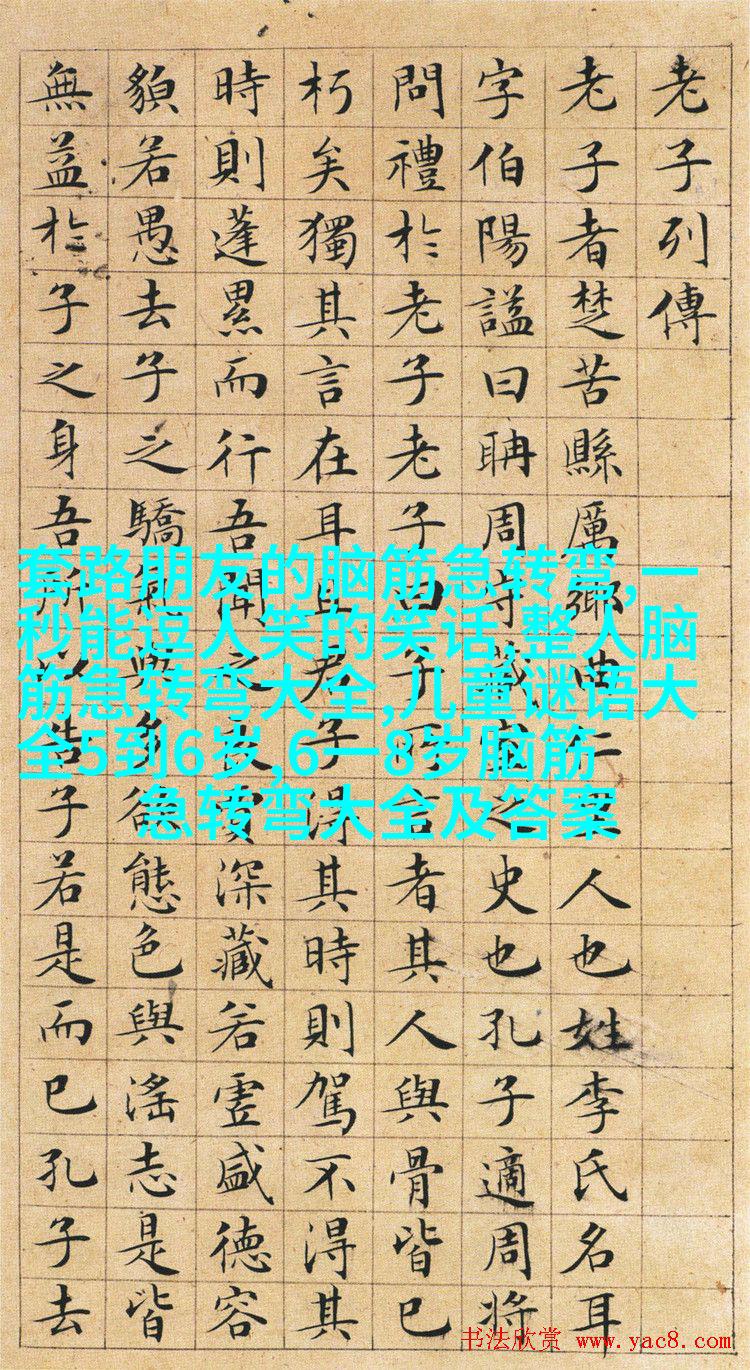 老子列傳
老子者楚苦縣厲鄉曲仁里人也姓李氏名耳
字伯陽謚曰聃周守藏室之史也孔子適周將
問禮於老子老子曰子所言者其人與骨皆已
朽矣獨其言在耳且君子得其時則駕不得其
時則蓬累而行吾聞之良賈深藏若虛盛德容
貌若愚去子之驕氣與多欲態色與滛志是皆
無益於子之身吾所以告子若是而已孔子去
套路朋友的脑筋急转弯,一
秒能逗人笑的笑话,整人脑
筋急转弯大全,儿童谜语大
全5到6岁,6一8岁脑筋
急转弯大全及答案
书法欣赏 www.yac8.com